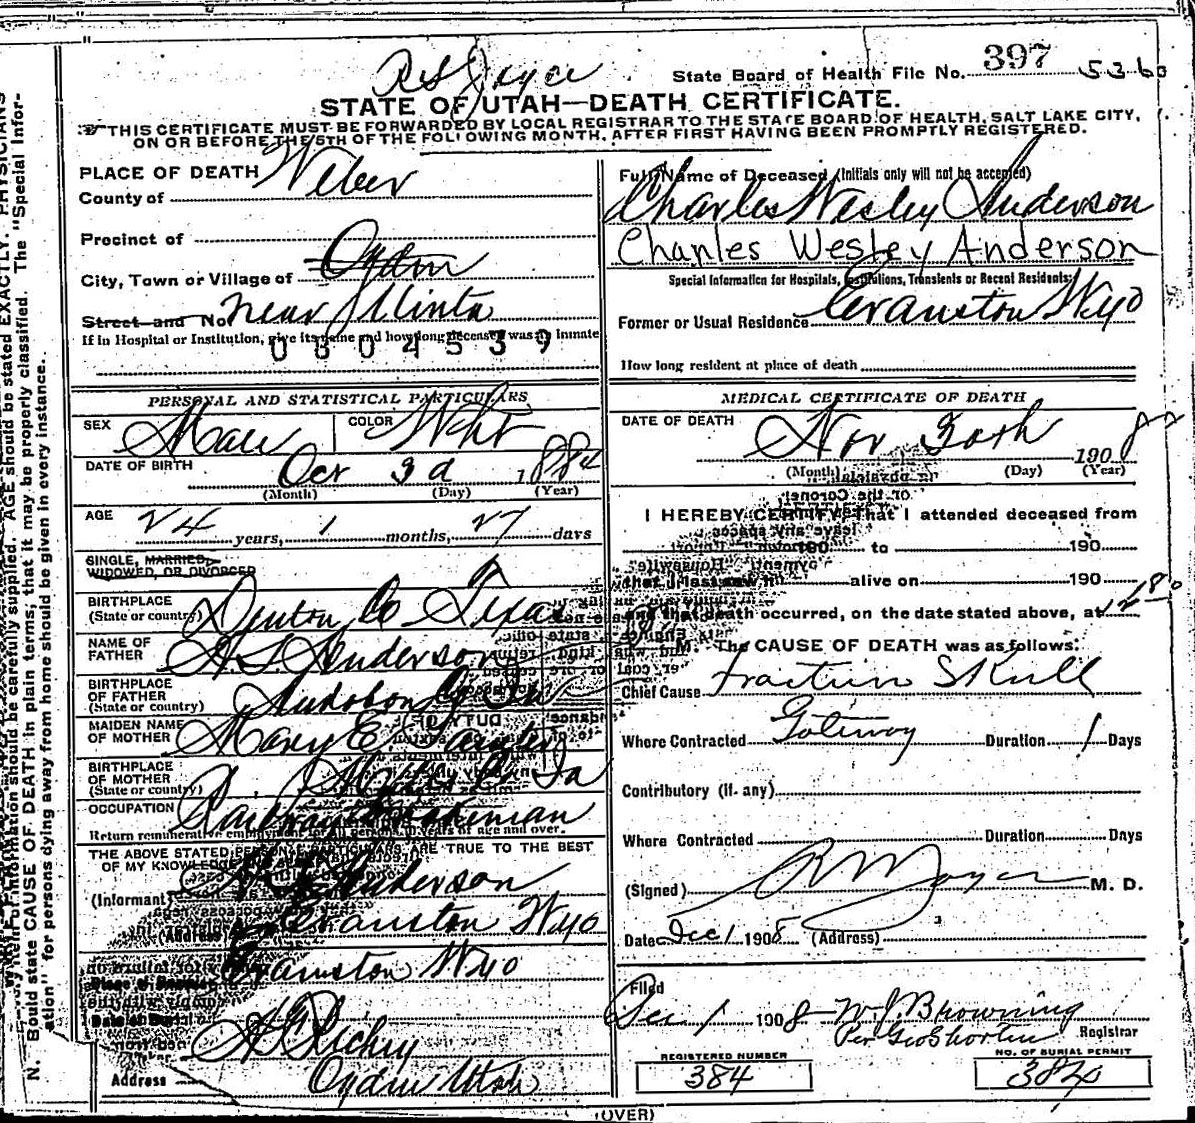 R S Joyce
State Board of Health File No. 397 5360
STATE OF UTAH—DEATH CERTIFICATE.
THIS CERTIFICATE MUST BE FORWARDED BY LOCAL REGISTRAR TO THE STATE BOARD OF HEALTH, SALT LAKE CITY,
ON OR BEFORE THE 5TH OF THE FOLLOWING MONTH, AFTER FIRST HAVING BEEN PROMPTLY REGISTERED.
PLACE OF DEATH
County of Weber
Precinct of
City, Town or Village of Ogden
Street and No. near Uinta
If in Hospital or Institution, give its name and how long deceased was an inmate
0804539
Full Name of Deceased (Initials only will not be accepted)
Charles Wesley Anderson
Charles Wesley Anderson
Special Information for Hospitals, Institutions, Transients or Recent Residents:
Former or Usual Residence Evanston Wyo
How long resident at place of death
PERSONAL AND STATISTICAL PARTICULARS
SEX Male COLOR Wht
DATE OF BIRTH Oct 3d 1884
(Month) (Day) (Year)
AGE 24 years, 1 months, 27 days
SINGLE, MARRIED,
WIDOWED, OR DIVORCED
BIRTHPLACE
(State or country) Denton Co Texas
NAME OF
FATHER Anderson
BIRTHPLACE
OF FATHER
(State or country) Audobon
MAIDEN NAME
OF MOTHER Mary E.
BIRTHPLACE
OF MOTHER
(State or country) Ia
OCCUPATION Railway Brakeman
Return remunerative employment for all persons 10 years of age and over.
THE ABOVE STATED PERSONAL PARTICULARS ARE TRUE TO THE BEST
OF MY KNOWLEDGE
(Informant) Anderson
(Address) Evanston Wyo
Evanston Wyo
Richey
Address Ogden Utah
MEDICAL CERTIFICATE OF DEATH
DATE OF DEATH Nov 30th 1908
(Month) (Day) (Year)
I HEREBY CERTIFY, That I attended deceased from
190 to 190
that I last saw h alive on 190
and that death occurred, on the date stated above, at
M. The CAUSE OF DEATH was as follows:
Chief Cause Fracture Skull
Where Contracted Gateway Duration 1 Days
Contributory (if any)
Where Contracted Duration Days
(Signed) M. D.
Date Dec 1 1908 (Address)
Filed
Dec 1 1908 W. J. Browning
Registrar
Per Geo Shorten
REGISTERED NUMBER
384
NO. OF BURIAL PERMIT
384
(OVER)
N. B.
Every item of information should be carefully supplied. AGE should be stated EXACTLY. PHYSICIANS
should state CAUSE OF DEATH in plain terms, that it may be properly classified. The "Special Infor-
mation" for persons dying away from home should be given in every instance.